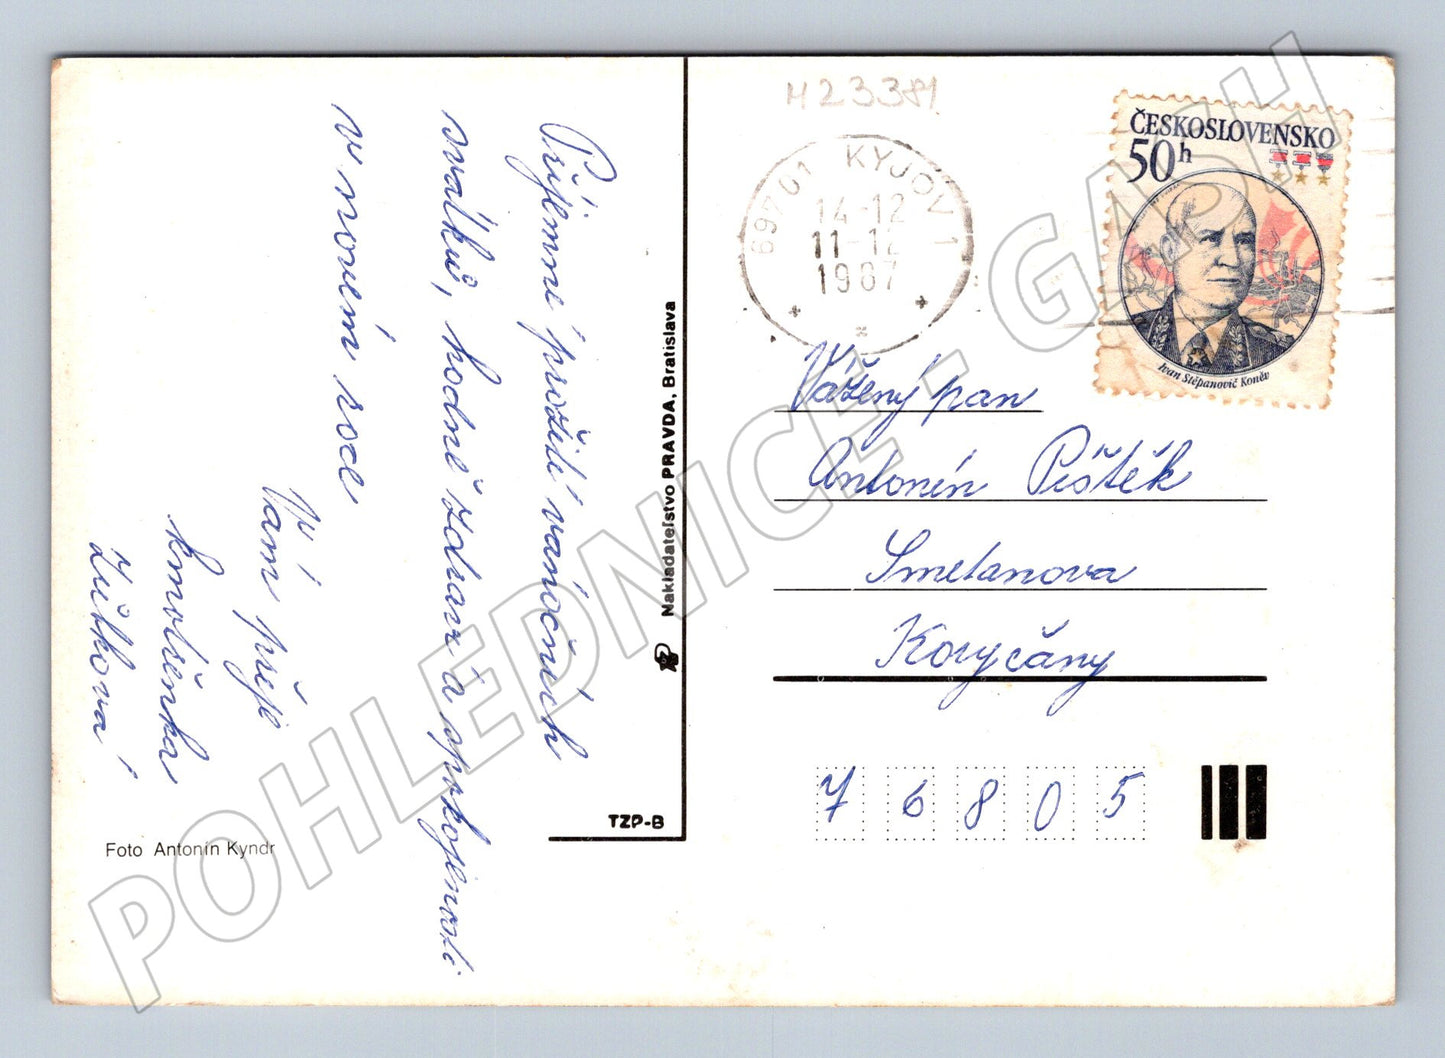 Příjemné prožití vánočních
svátků, hodně zdraví a spokojenosti
v novém roce
Vám přeje
kmotřenka
Zůbková
Foto Antonín Kyndr
Nakladateľstvo PRAVDA, Bratislava
TZP-B
H23381
697 01 KYJOV 1
14-12
11-12
1987
ČESKOSLOVENSKO
50h
Ivan Stěpanovič Koněv
Vážený pan
Antonín Pištěk
Smetanova
Koryčany
7 6 8 0 5
POHLEDNICE - GASH